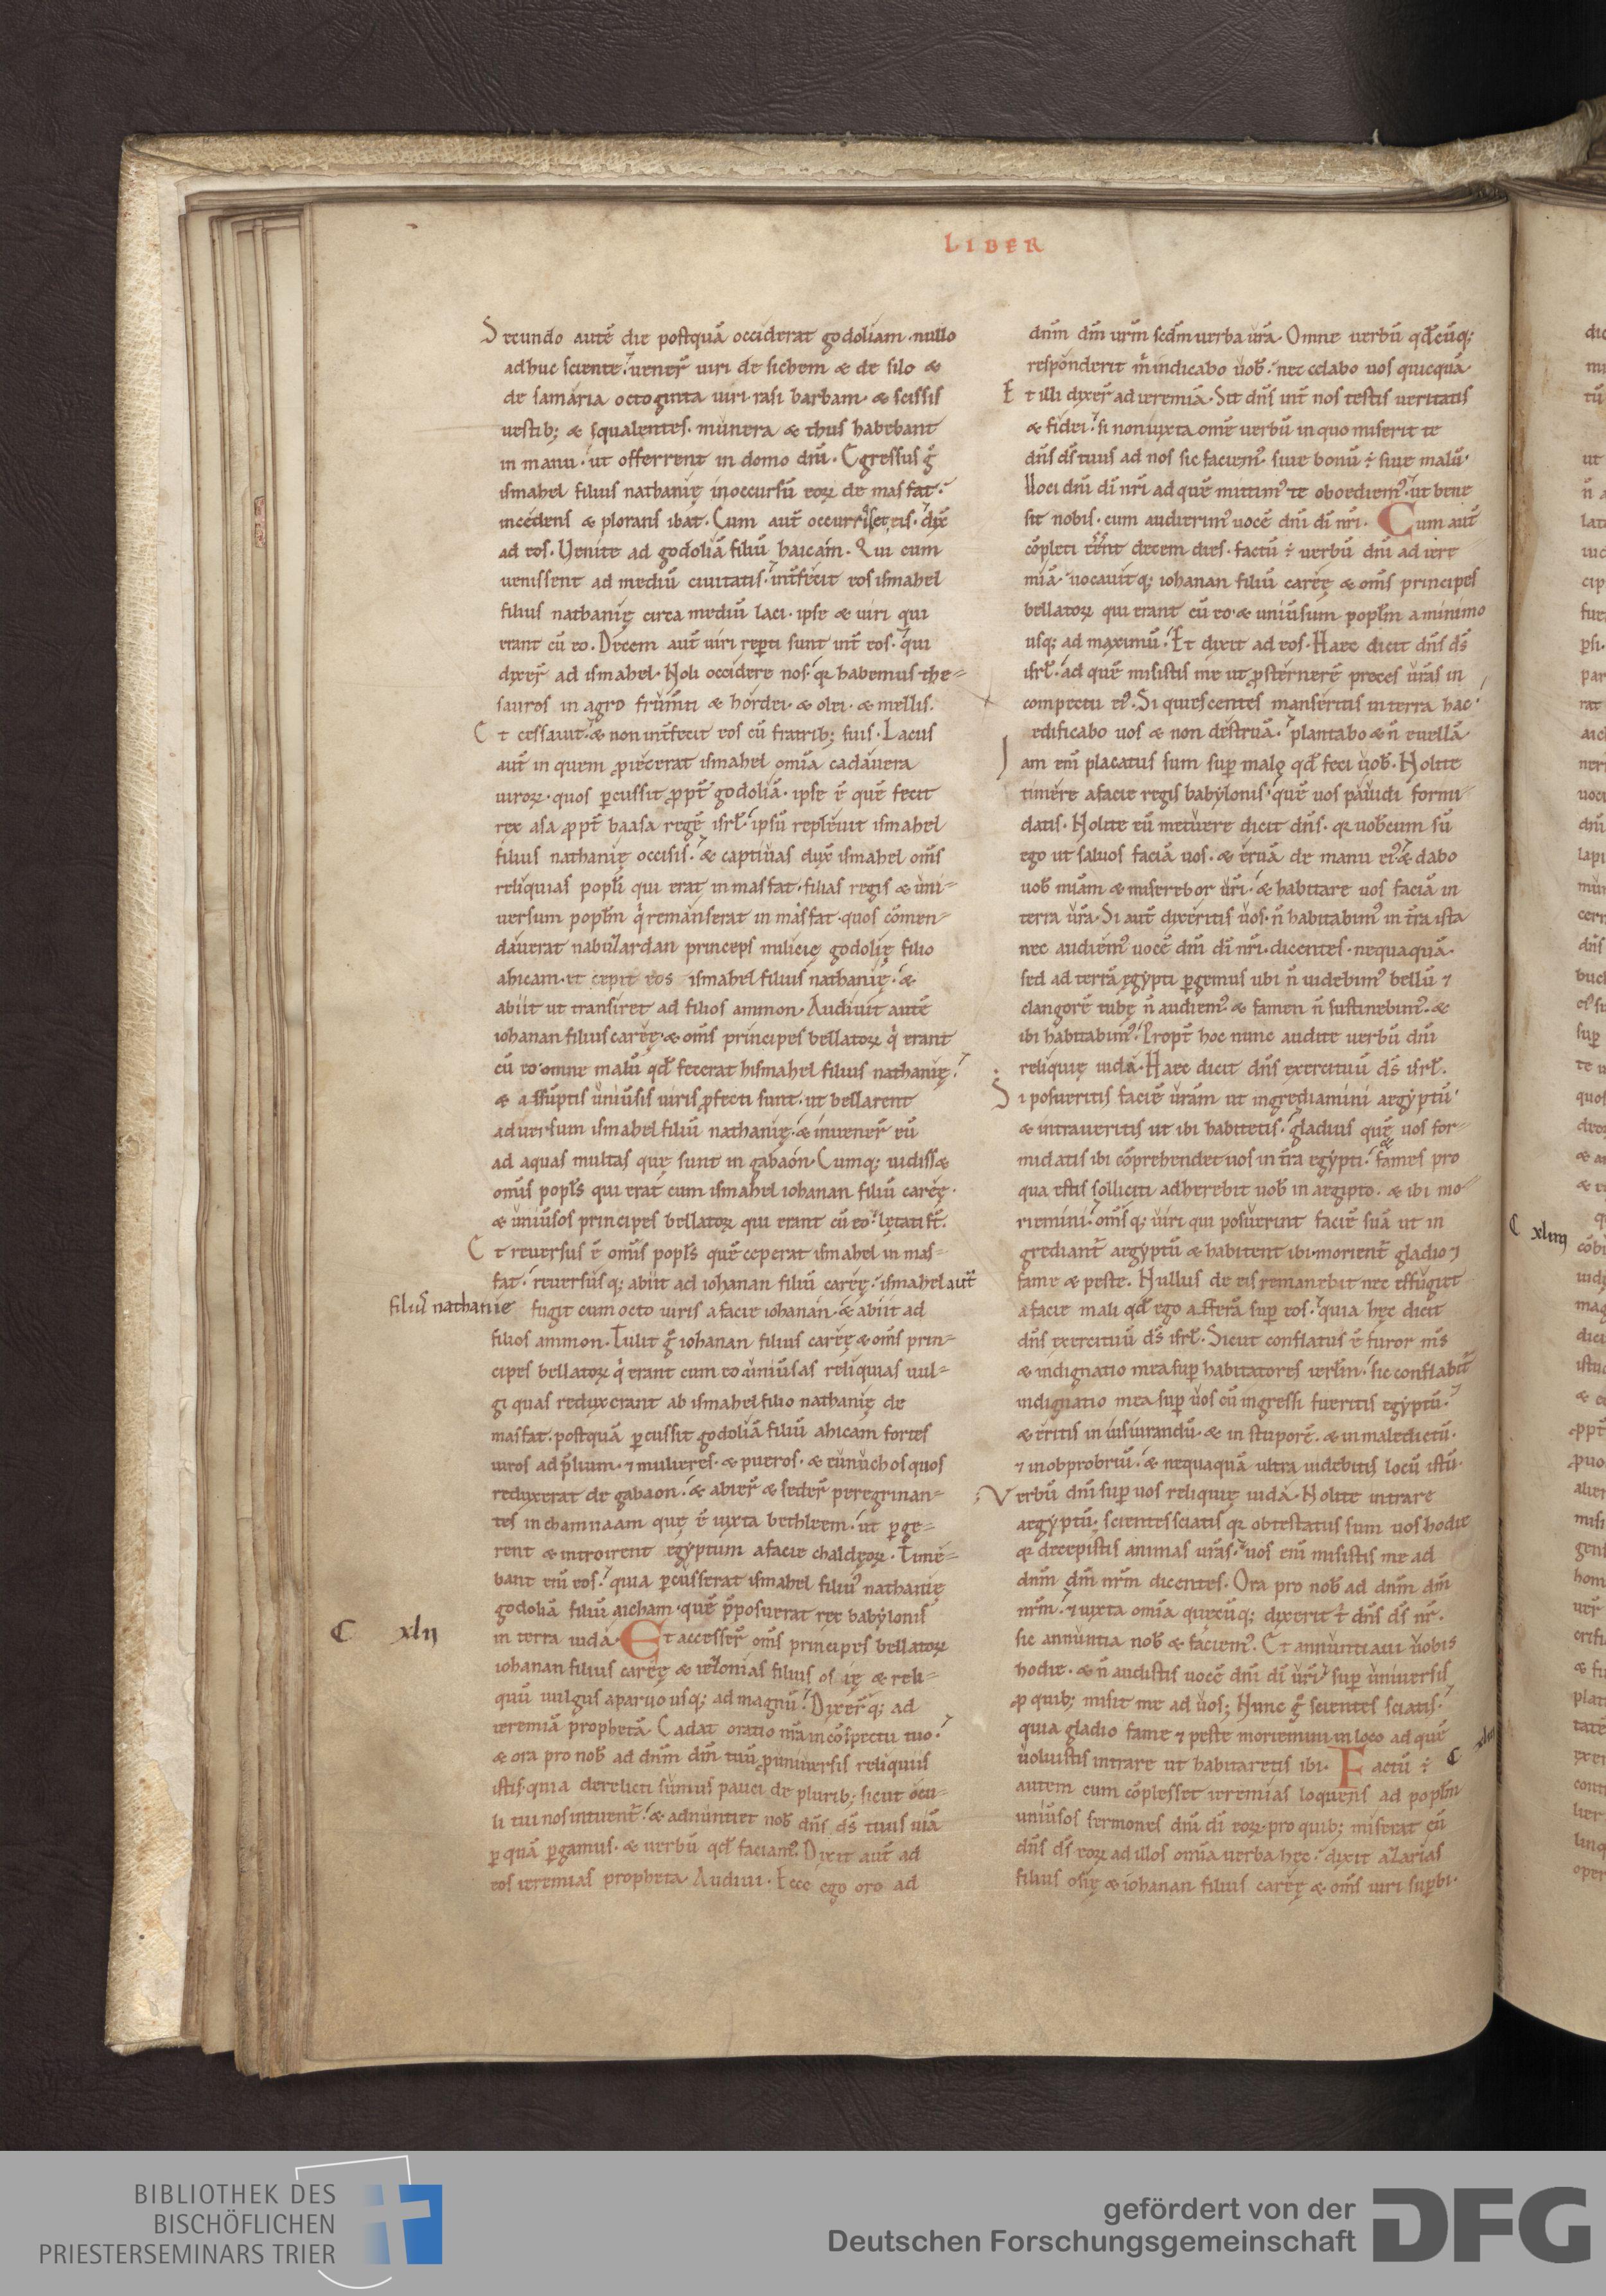 LIBER
Secundo autē die postquā occiderat godoliam. nullo
adhuc sciente. uener̄ uiri de sichem & de silo &
de samaria octoginta uiri. rasi barbam. & scissis
uestib; & squalentes. munera & thus habebant
in manu. ut offerrent in domo dn̄i. Egressus g̊
ismahel filius nathanię in occursū eoꝝ de masfat.
incedens & plorans ibat. Cum aut̄ occurrisset eis. dix̄
ad eos. Uenite ad godoliā filiū haicam. Qui cum
uenissent ad mediū ciuitatis. int̄fecit eos ismahel
filius nathanię circa mediū laci. ipse & uiri qui
erant cū eo. Decem aut̄ uiri rep̄ti sunt int̄ eos. qui
dixer̄ ad ismahel. Noli occidere nos. qꝛ habemus the-
sauros in agro frum̄ti & hordei. & olei. & mellis.
Et cessauit. & non int̄fecit eos cū fratrib; suis. Lacus
aut̄ in quem ꝓiecerat ismahel omīa cadauera
uiroꝝ. quos ꝑcussit ꝓpt̄ godoliā. ipse ē quē fecit
rex asa ꝓpt̄ baasa regē isrl̄. ipsū repleuit ismahel
filius nathanię occisis. & captiuas dux̄ ismahel om̄s
reliquias popl̄i qui erat in masfat. filias regis & uni-
uersum popl̄m q̇ remanserat in masfat. quos cōmen-
dauerat nabuzardan princeps milicię godolię filio
ahicam. et cepit eos ismahel filius nathanię. &
abiit ut transiret ad filios ammon. Audiuit autē
iohanan filius careę. & om̄s principes bellatoꝝ q̇ erant
cū eo. omne malū qd̄ fecerat hismahel filius nathanię.
& assūptis uniūsis uiris ꝓfecti sunt. ut bellarent
aduersum ismahel filiū nathanię. & inuener̄ eū
ad aquas multas quę sunt in gabaon. Cumq; uidiss&
om̄is popl̄s qui erat cum ismahel iohanan filiū careę.
& uniūsos principes bellatoꝝ qui erant cū eo. lętati st̄.
Et reuersus ē om̄is popl̄s quē ceperat ismahel in mas-
fat. reuersusq; abiit ad iohanan filiū careę. ismahel aut̄
filiꝰ nathanie fugit cum octo uiris a facie iohanan. & abiit ad
filios ammon. Tulit g̊ iohanan filius careę & om̄s prin-
cipes bellatoꝝ q̇ erant cum eo uniūsas reliquias uul-
gi quas reduxerant ab ismahel filio nathanię de
masfat. postquā ꝑcussit godoliā filiū ahicam fortes
uiros ad p̄lium. ⁊ mulieres. & pueros. & eunuchos quos
reduxerat de gabaon. & abier̄ & seder̄ peregrinan-
tes in chamnaam quę ē iuxta bethleem. ut ꝑge-
rent & introirent egyptum a facie chaldęoꝝ. Time-
bant em̄ eos. quia ꝑcusserat ismahel filiꝰ nathanię
godoliā filiū aicham. quē p̄posuerat rex babylonis
C xlij in terra iuda. Et accesser̄ om̄s principes bellatoꝝ
iohanan filius careę & iezonias filius osię & reli-
quū uulgus a paruo usq; ad magnū. Dixer̄q; ad
ieremiā prophetā. Cadat oratio n̄ra in cōspectu tuo.
& ora pro nob̄ ad dn̄m dm̄ tuū ꝓ uniuersis reliquiis
istis. quia derelicti sumus pauci de plurib; sicut ocu-
li tui nos intuent̄. & adnuntiet nob̄ dn̄s ds̄ tuus uiā
ꝑ quā ꝑgamus. & uerbū qd̄ faciamꝰ. Dixit aut̄ ad
eos ieremias propheta. Audiui. Ecce ego oro ad
dn̄m dm̄ ur̄m scd̄m uerba ur̄a. Omne uerbū qd̄cūq;
responderit m̄ indicabo uob̄. nec celabo uos quicquā.
Et illi dixer̄ ad ieremiā. Sit dn̄s int̄ nos testis ueritatis
& fidei. si non iuxta om̄e uerbū in quo miserit te
dn̄s ds̄ tuus ad nos sic faciemꝰ. siue bonū ē siue malū.
Uoci dn̄i di n̄ri ad quē mittimꝰ te oboediemꝰ. ut bene
sit nobis. cum audierimꝰ uocē dn̄i di n̄ri. Cum aut̄
cōpleti ēent decem dies. factū ē uerbū dn̄i ad iere
miā. uocauitq; iohanan filiū careę & om̄s principes
bellatoꝝ qui erant cū eo. & uniūsum popl̄m a minimo
usq; ad maximū. Et dixit ad eos. Haec dicit dn̄s ds̄
isrl̄. ad quē misistis me ut ꝓsternerē preces ur̄as in
conspectu eiꝰ. Si quiescentes manseritis in terra hac
edificabo uos & non destruā. plantabo & n̄ euellā
Iam em̄ placatus sum sup̄ malo qd̄ feci uob̄. Nolite
timere a facie regis babylonis. quē uos pauidi formi-
datis. Nolite eū metuere dicit dn̄s. qꝛ uob̄cum sū
ego ut saluos faciā uos. & eruā de manu eiꝰ. & dabo
uob̄ miām & miserebor ur̄i. & habitare uos faciā in
terra ur̄a. Si aut̄ dixeritis uos. n̄ habitabimꝰ in t̄ra ista
nec audiemꝰ uocē dn̄i di n̄ri. dicentes. nequaquā.
sed ad terrā egypti ꝑgemus ubi n̄ uidebimꝰ bellū ⁊
clangorē tubę n̄ audiemꝰ. & famen n̄ sustinebimꝰ. &
ibi habitabimꝰ. Propt̄ hoc nunc audite uerbū dn̄i
reliquię iuda. Haec dicit dn̄s exercituū ds̄ isrl̄.
Si posueritis faciē ur̄am ut ingrediamini aegyptū.
& intraueritis ut ibi habitetis. gladius quē uos for-
midatis ibi cōprehendet uos in t̄ra egypti. & fames pro
qua estis solliciti adherebit uob̄ in aegipto. & ibi mo-
riemini. om̄sq; uiri qui posuerint faciē suā ut in
grediant̄ aegyptū & habitent ibi. morient̄ gladio ⁊
fame & peste. Nullus de eis remanebit nec effugiet
a facie mali qd̄ ego afferā sup̄ eos. quia hęc dicit
dn̄s exercituū ds̄ isrl̄. Sicut conflatus ē furor m̄s
& indignatio mea sup̄ habitatores ierl̄m. sic conflabit̄
indignatio mea sup̄ uos cū ingressi fueritis egyptū.
& eritis in iusiurandū. & in stuporē. & in maledictū.
⁊ in obprobriū. & nequaquā ultra uidebitis locū istū.
Verbū dn̄i sup̄ uos reliquię iuda. Nolite intrare
aegyptū. scientes sciatis qꝛ obtestatus sum uos hodie
qꝛ decepistis animas ur̄as. uos em̄ misistis me ad
dn̄m dm̄ nr̄m dicentes. Ora pro nob̄ ad dn̄m dm̄
nr̄m. ⁊ iuxta omīa quęcūq; dixerit t̄ dn̄s ds̄ nr̄.
sic annuntia nob̄ & faciemꝰ. Et annuntiaui uobis
hodie. & n̄ audistis uocē dn̄i di ur̄i sup̄ uniuersis
ꝓ quib; misit me ad uos; Nunc g̊ scientes sciatis.
quia gladio fame ⁊ peste moriemini in loco ad quē
uoluistis intrare ut habitaretis ibi. Factū ē C xliii
autem cum cōplesset ieremias loquens ad popl̄m
uniūsos sermones dn̄i di eoꝝ. pro quib; miserat eū
dn̄s ds̄ eoꝝ ad illos omīa uerba hęc. dixit azarias
filius osię & iohanan filius careę & om̄s uiri sup̄bi.
C xliiij
BIBLIOTHEK DES
BISCHÖFLICHEN
PRIESTERSEMINARS TRIER
gefördert von der
Deutschen Forschungsgemeinschaft
DFG